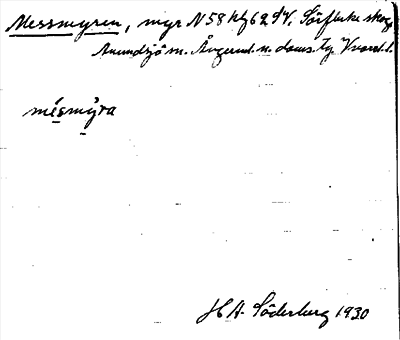 Messmyren, myr N 58 kbf 62 SV. Sörflärke skog
Anundsjö sn. Ångerml. n. doms. Tg. Vnorrl. l.
mésmỳra
H A. Söderberg 1930